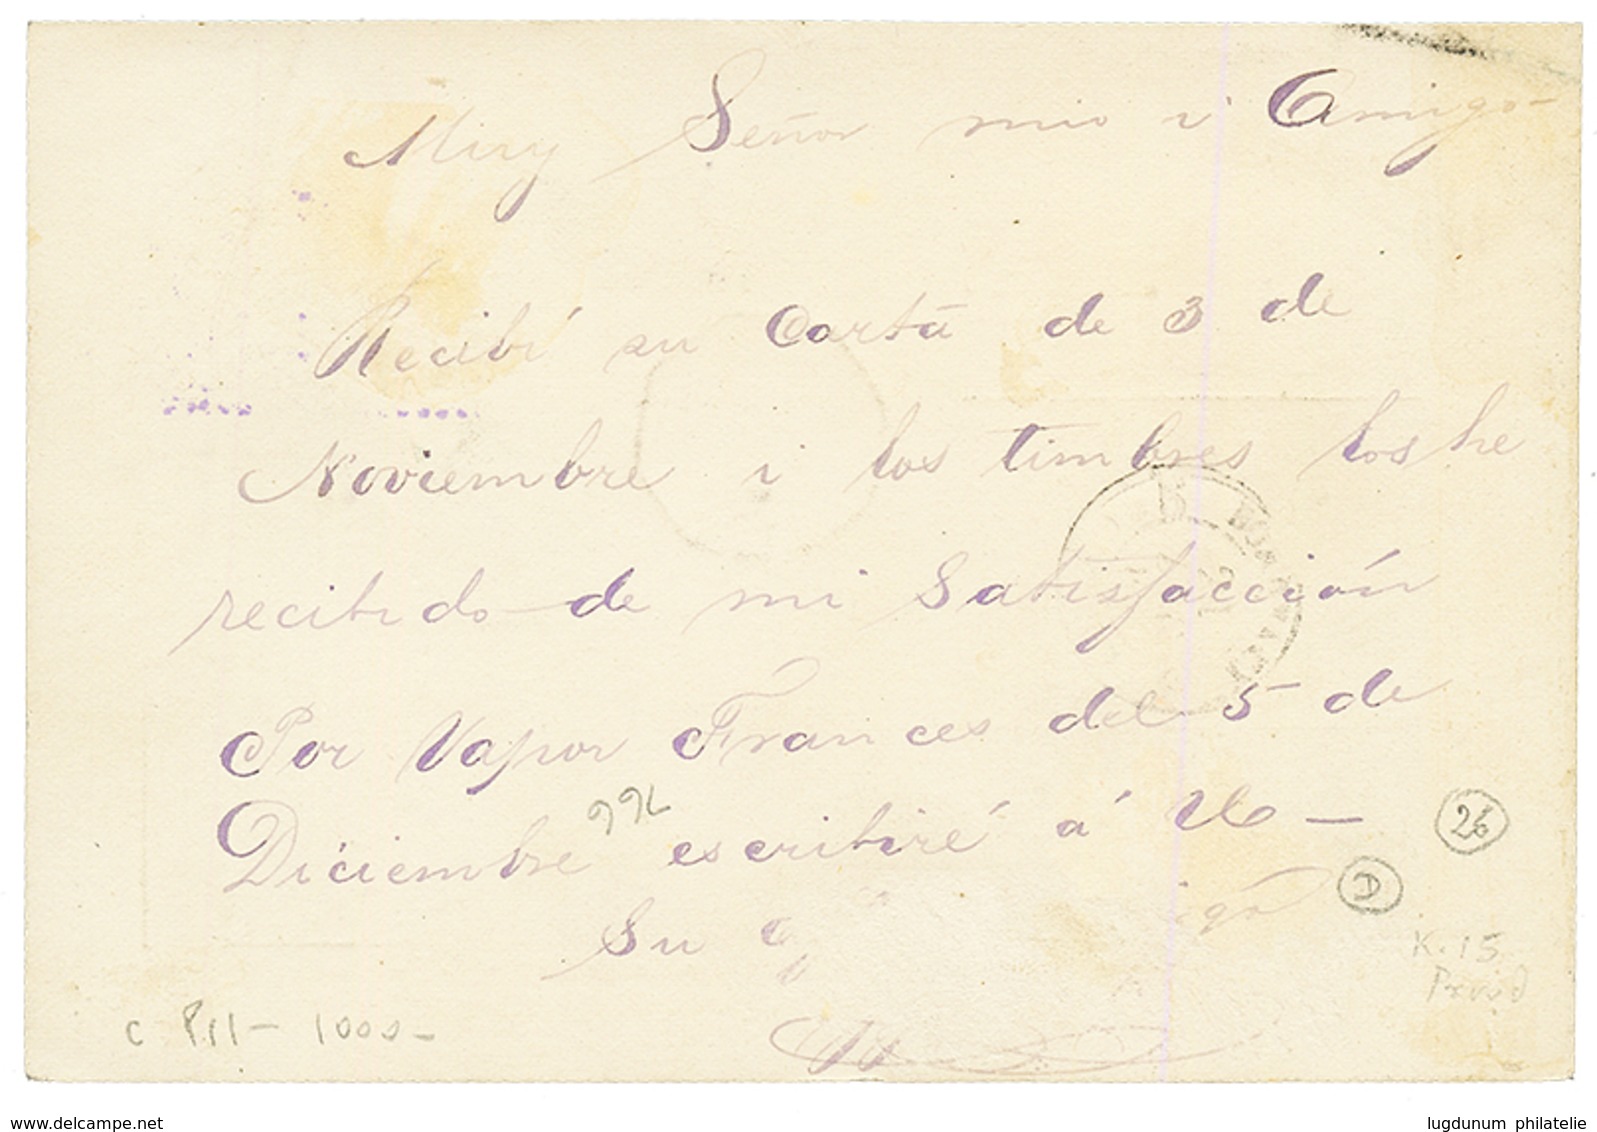 Muy Señor mio i Amigo-
Recibí su Carta de 3 de
Noviembre i los timbres los he
recibido de mi Satisfacción
Por Vapor Frances del 5 de
Diciembre escribiré á
Su
26
D
K. 15
C P11 - 1000 -
delcampe.net
lugdunum philatelie